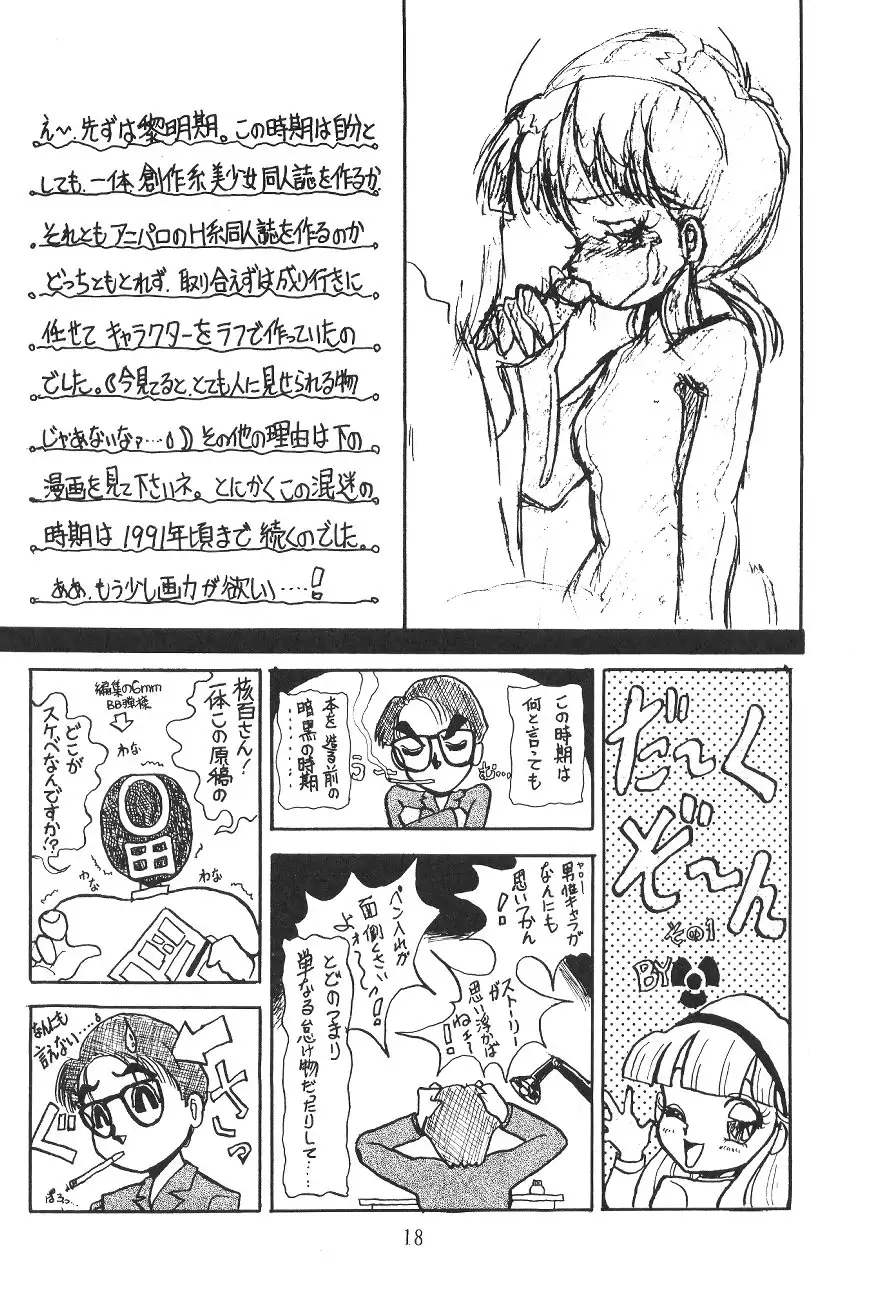 え〜、先ずは黎明期。この時期は自分と
しても、一体創作系美少女同人誌を作るか
それともアニパロのH系同人誌を作るのか
どっちともとれず、取り合えずは成り行きに
任せてキャラクターをラフで作っていたの
でした。(今見てると、とても人に見せられる物
じゃあないなァ…)その他の理由は下の
漫画を見て下さいネ。とにかくこの混迷の
時期は1991年頃まで続くのでした。
ああ、もう少し画力が欲しい……!
だ〜く
ぞ〜ん
その1
BY
この時期は
何と言っても
本を造る前の
暗黒の時期
う
む…
男性キャラが
なんにも
思いつかん
!!
ストーリー
が
思い浮かば
ねェー
!!
ペン入れが
面倒くさい
よォ〜
!!
とどのつまり
単なる怠け物だったりして……
核百さん!
一体この原稿の
どこが
スケベなんですか!?
編集の6mm
BB弾様
わな
わな
わな
なんにも
言えない……
ぐ
さっ
ぽろっ…
18